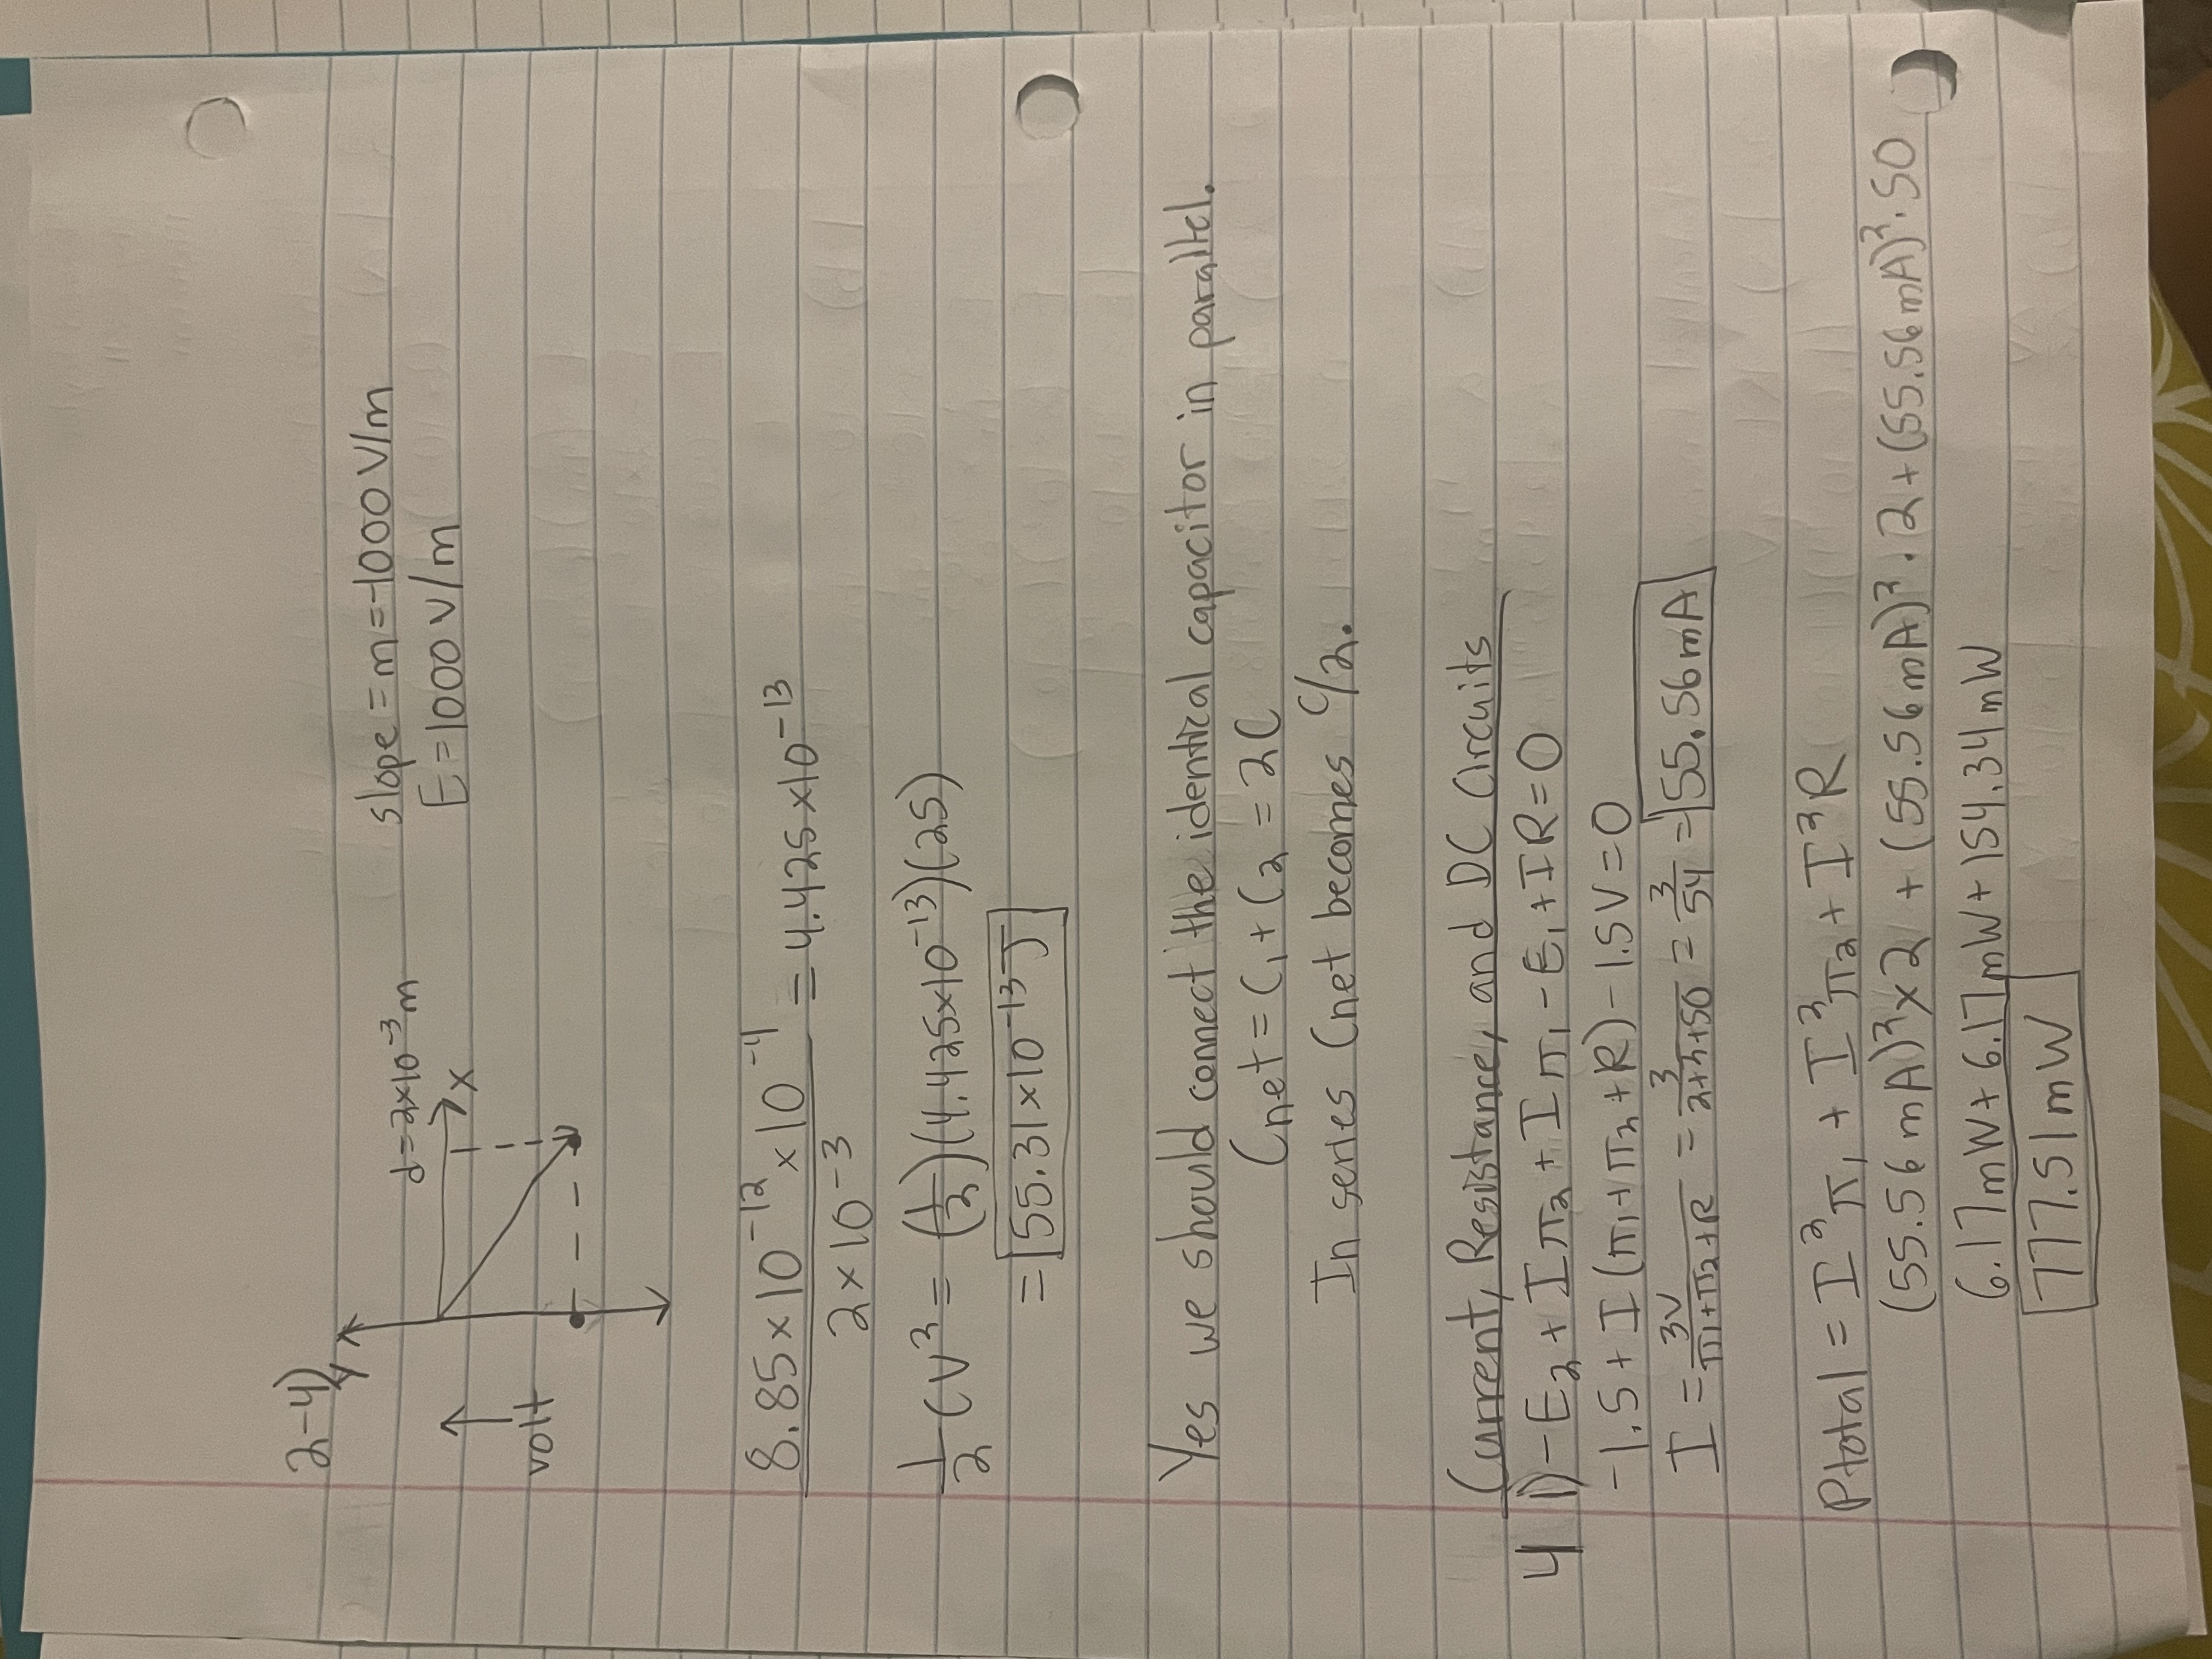 2-4)
y
d=2×10⁻³m
x
volt
slope = m = -1000 V/m
E = 1000 V/m
8.85×10⁻¹² × 10⁻⁴ / 2×10⁻³ = 4.425×10⁻¹³
1/2 CV² = (1/2)(4.425×10⁻¹³)(25)
= 55.31×10⁻¹³ J
Yes we should connect the identical capacitor in parallel.
Cnet = C₁ + C₂ = 2C
In series Cnet becomes C/2.
Current, Resistance, and DC Circuits
4 1) -E₂ + Iπ₂ + Iπ₁ - E₁ + IR = 0
-1.5 + I(π₁ + π₂ + R) - 1.5V = 0
I = 3V/π₁+π₂+R = 3/2+2+50 = 3/54 = 55.56mA
Ptotal = I²π₁ + I²π₂ + I²R
(55.56mA)² × 2 + (55.56mA)² · 2 + (55.56mA)² · 50
6.17mW + 6.17mW + 154.34mW
777.51mW